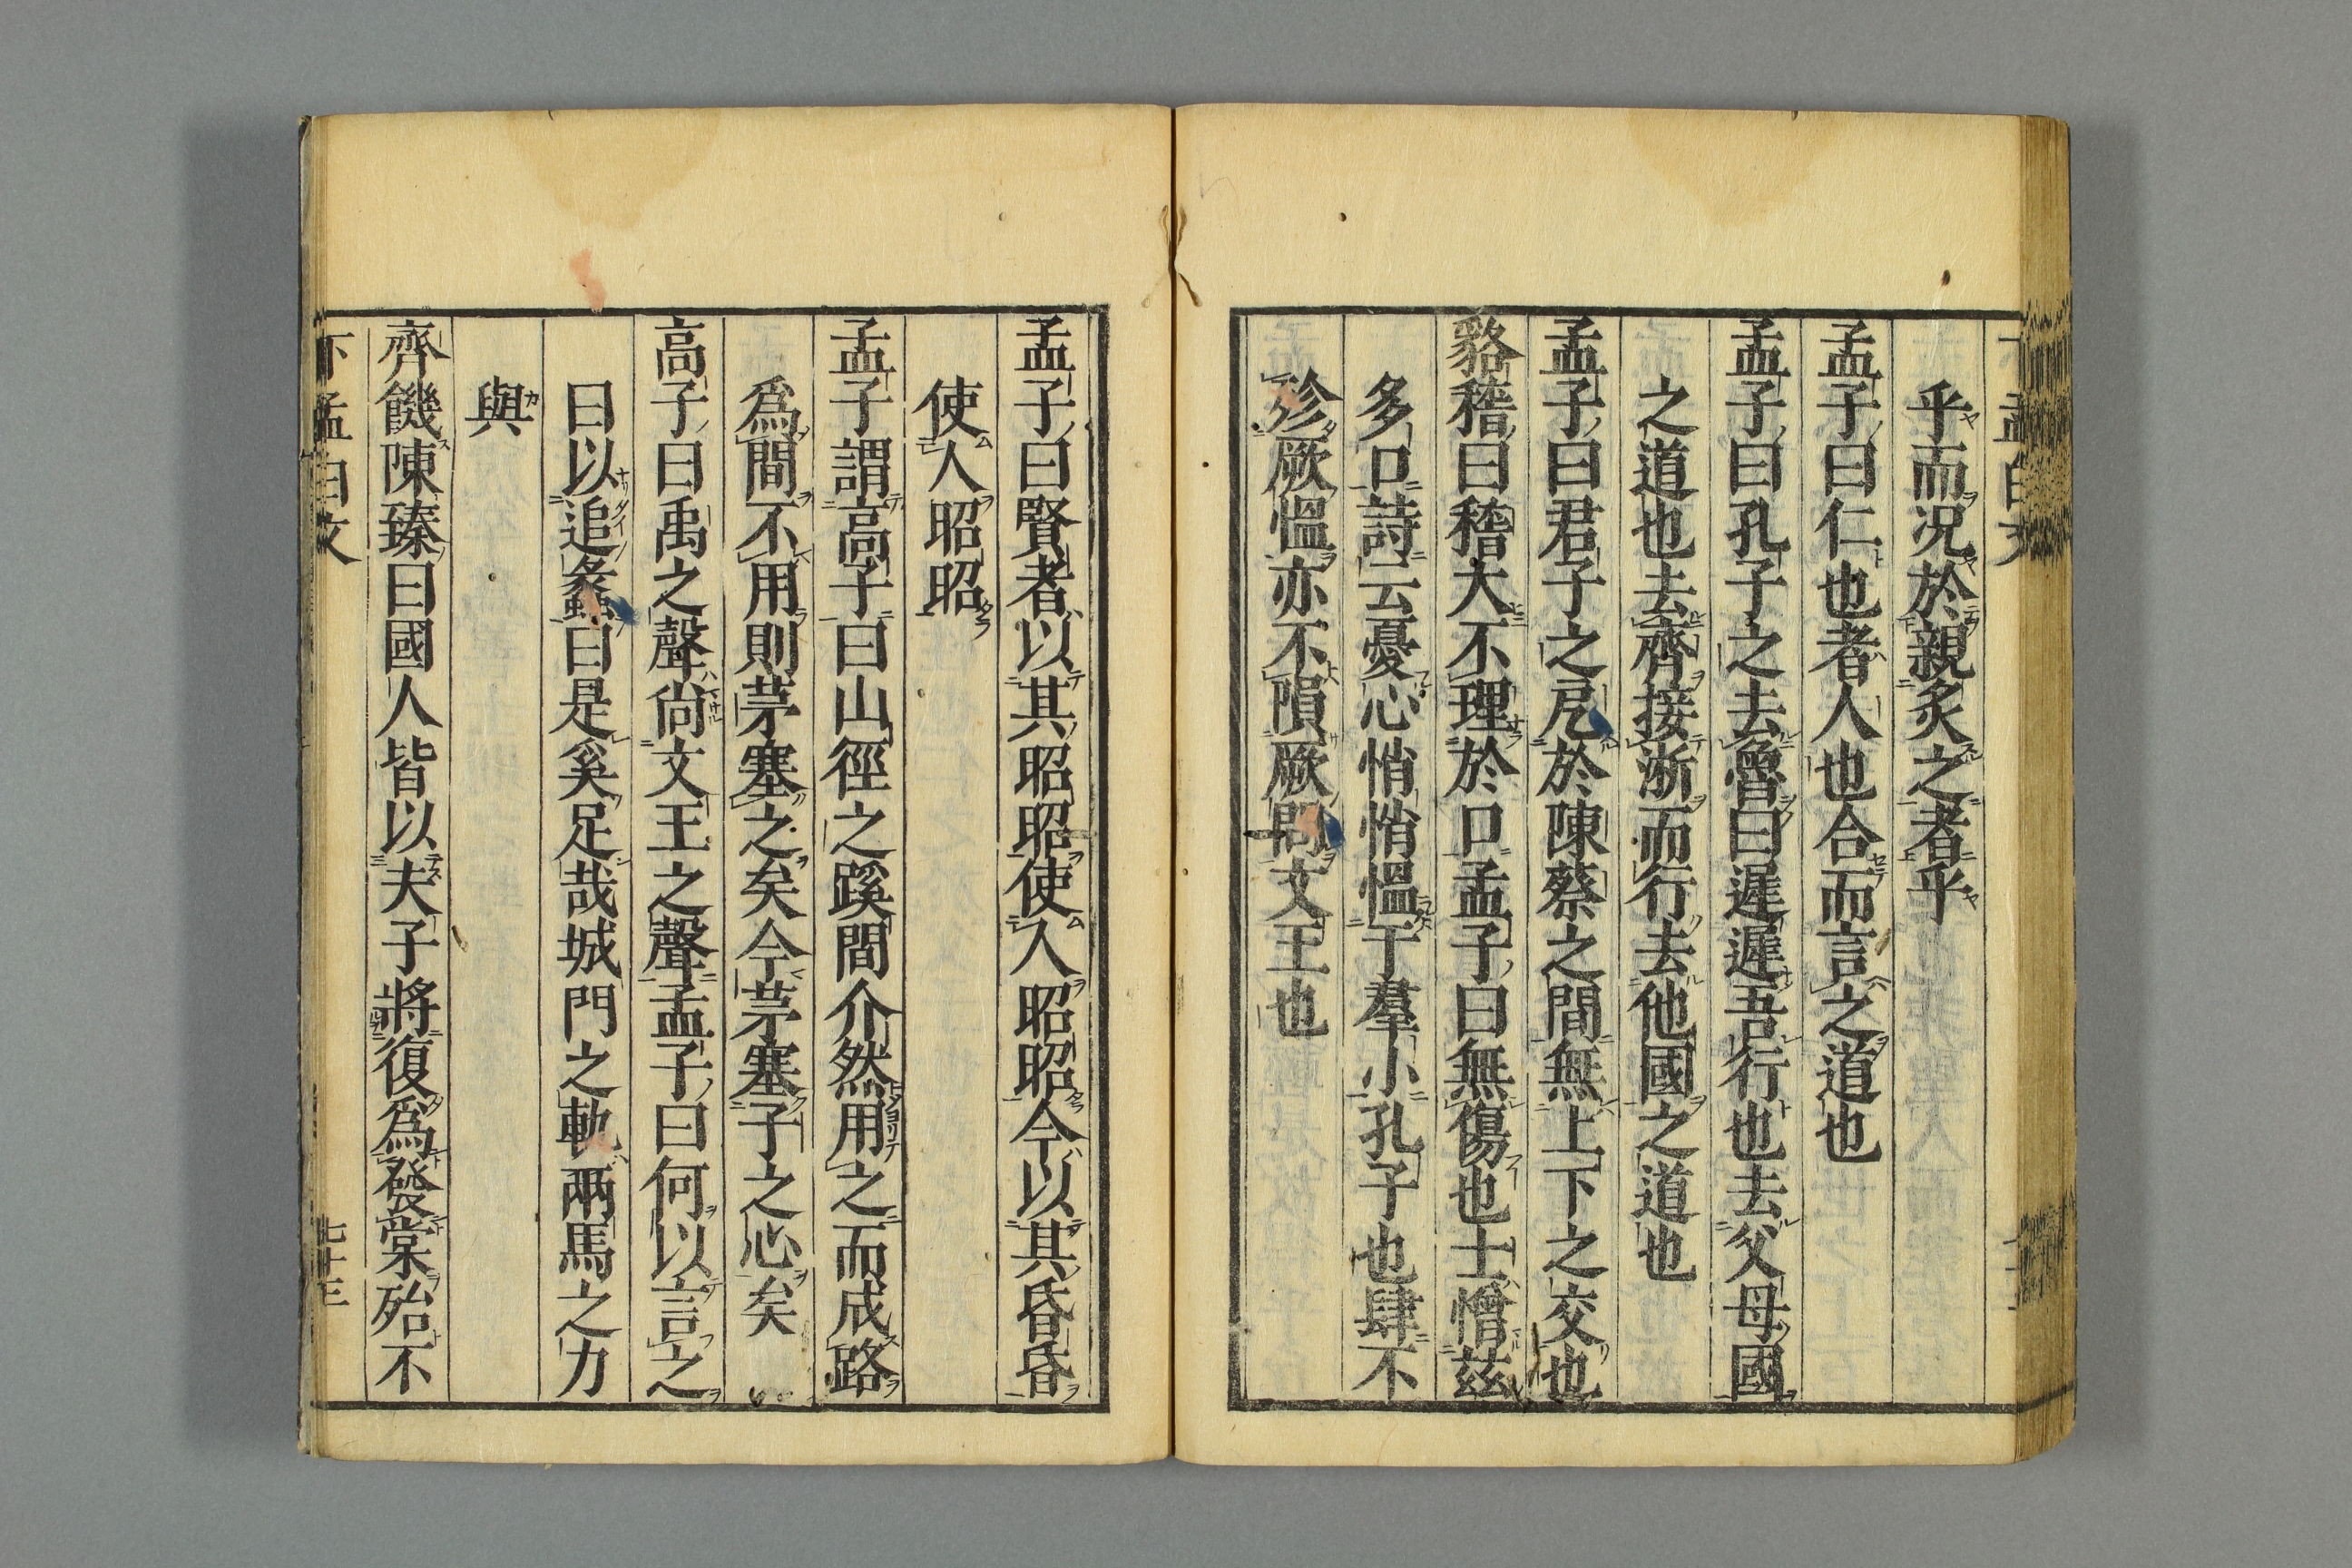 乎而况於親炙之者乎
孟子曰仁也者人也合而言之道也
孟子曰孔子之去魯曰遲遲吾行也去父母國
之道也去齊接淅而行去他國之道也
孟子曰君子之戹於陳蔡之間無上下之交也
貉稽曰稽大不理於口孟子曰無傷也士憎茲
多口詩云憂心悄悄慍于羣小孔子也肆不
殄厥慍亦不隕厥問文王也
孟子曰賢者以其昭昭使人昭昭今以其昏昏
使人昭昭
孟子謂高子曰山徑之蹊間介然用之而成路
爲間不用則茅塞之矣今茅塞子之心矣
高子曰禹之聲尚文王之聲孟子曰何以言之
曰以追蠡曰是奚足哉城門之軌兩馬之力
與
齊饑陳臻曰國人皆以夫子將復爲發棠殆不
下孟白文 七十三